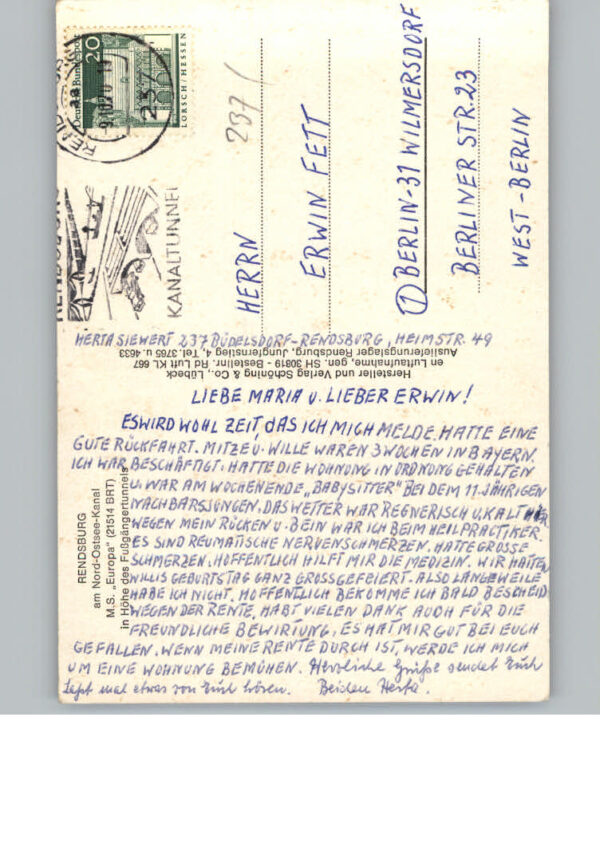 20
Deutsche Bundespost
LORSCH/HESSEN
9.10.70
237
RENDSBURG
KANALTUNNEL
237
HERRN
ERWIN FETT
① BERLIN-31 WILMERSDORF
BERLINER STR. 23
WEST-BERLIN
HERTA SIEWERT 237 BÜDELSDORF-RENDSBURG, HEIMSTR. 49
Hersteller und Verlag Schöning & Co., Lübeck
en Luftaufnahme, gen. SH 30819 - Bestellnr. Rd Luft KL 667
Auslieferungslager Rendsburg, Jungfernstieg, 4, Tel. 3765 u. 4633
RENDSBURG
am Nord-Ostsee-Kanal
M.S. „Europa" (21514 BRT)
in Höhe des Fußgängertunnels
LIEBE MARIA U. LIEBER ERWIN!
ES WIRD WOHL ZEIT, DAS ICH MICH MELDE. HATTE EINE
GUTE RÜCKFAHRT. MITZE U. WILLE WAREN 3 WOCHEN IN BAYERN.
ICH WAR BESCHÄFTIGT. HATTE DIE WOHNUNG IN ORDNUNG GEHALTEN
U. WAR AM WOCHENENDE „BABYSITTER" BEI DEM 11. JÄHRIGEN
NACHBARSJUNGEN. DAS WETTER WAR REGNERISCH U. KALT HIER
WEGEN MEIN RÜCKEN U. BEIN WAR ICH BEIM HEILPRACTIKER.
ES SIND REUMATISCHE NERVENSCHMERZEN. HATTE GROSSE
SCHMERZEN. HOFFENTLICH HILFT MIR DIE MEDIZIN. WIR HATTEN
WILLIS GEBURTSTAG GANZ GROSSGEFEIERT. ALSO LANGEWEILE
HABE ICH NICHT. HOFFENTLICH BEKOMME ICH BALD BESCHEID
WEGEN DER RENTE. HABT VIELEN DANK AUCH FÜR DIE
FREUNDLICHE BEWIRTUNG. ES HAT MIR GUT BEI EUCH
GEFALLEN. WENN MEINE RENTE DURCH IST, WERDE ICH MICH
UM EINE WOHNUNG BEMÜHEN. Herzliche Grüße sendet Euch
Laßt mal etwas von Euch hören. Beiden Herta.